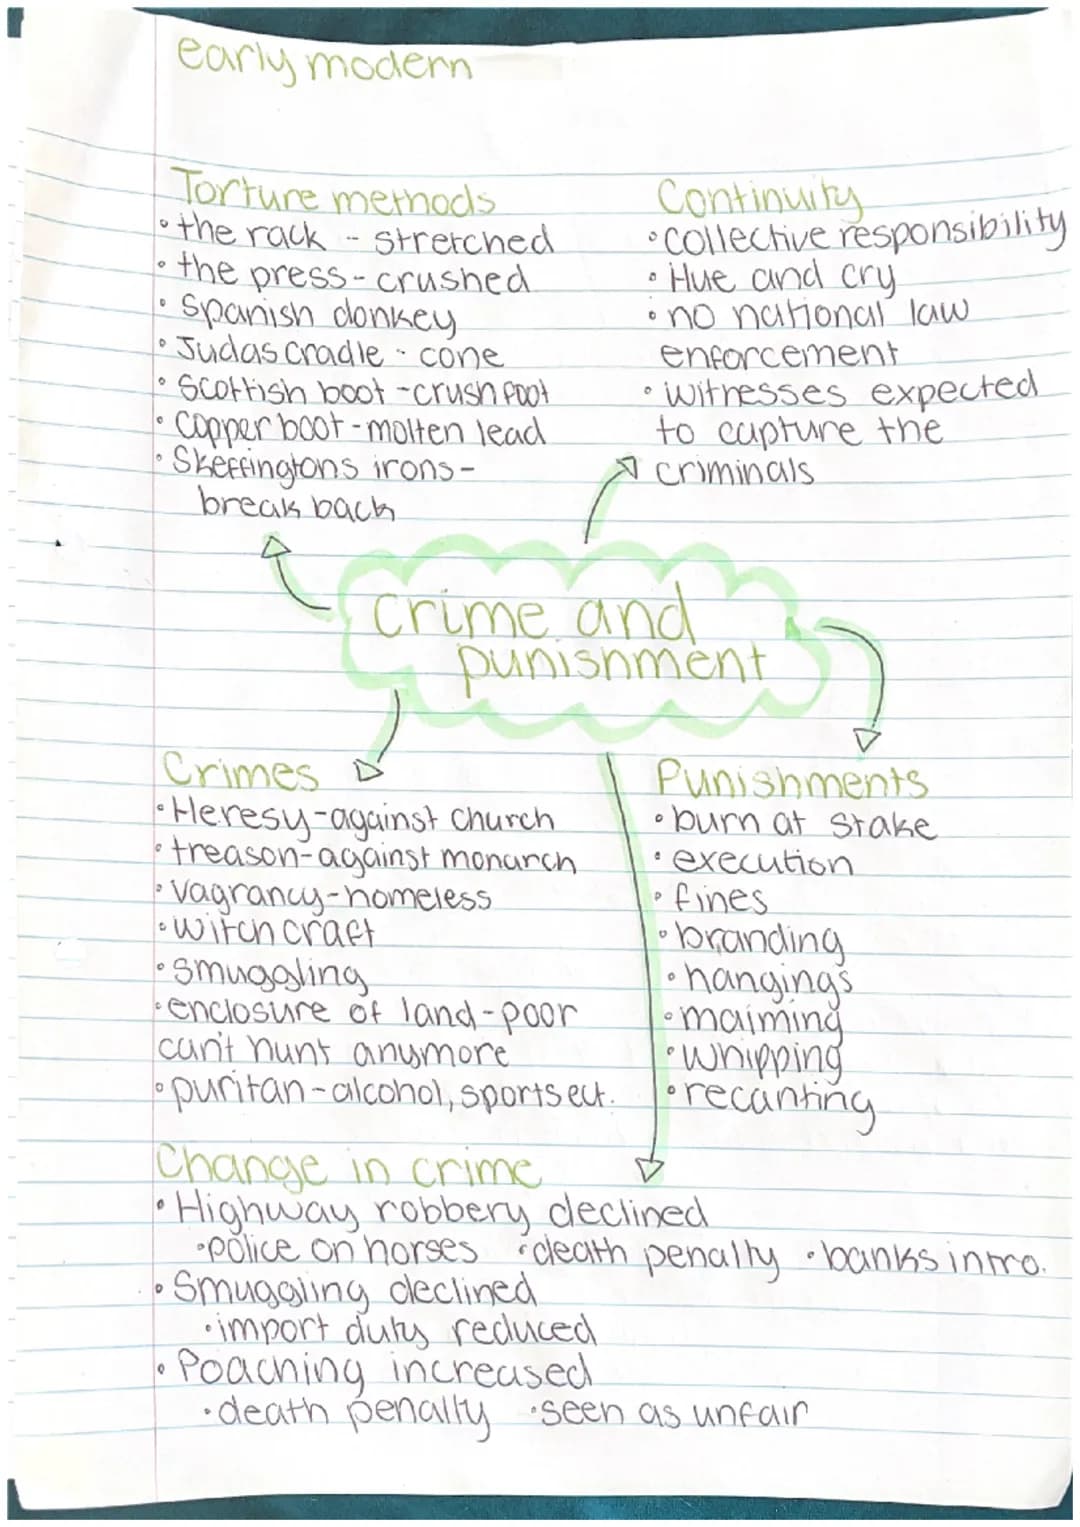 early modern
Torture methods
• the rack - stretched
• the press - crushed
• Spanish donkey
• Judas Cradle - cone
• Scottish boot - crush foot
• Copper boot - molten lead
• Skeffingtons irons -
break back
Continuity
• collective responsibility
• Hue and cry
• no national law
enforcement
• witnesses expected
to capture the
criminals
crime and
punishment
Crimes
• Heresy - against church
• treason - against monarch
• vagrancy - homeless
• witch craft
• smuggling
• enclosure of land - poor
can't hunt anymore
• puritan - alcohol, sports ect.
Punishments
• burn at stake
• execution
• fines
• branding
• hangings
• maiming
• whipping
• recanting
Change in crime
• Highway robbery declined
• police on horses • death penalty • banks intro.
• Smuggling declined
• import duty reduced
• Poaching increased
• death penalty • seen as unfair